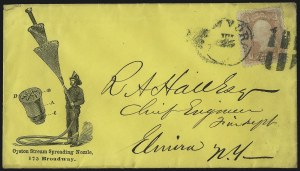 R. A. Hall Esq
Chief Engineer
Fire dept
Elmira N.Y.
Oyston Stream Spreading Nozzle,
173 Broadway.